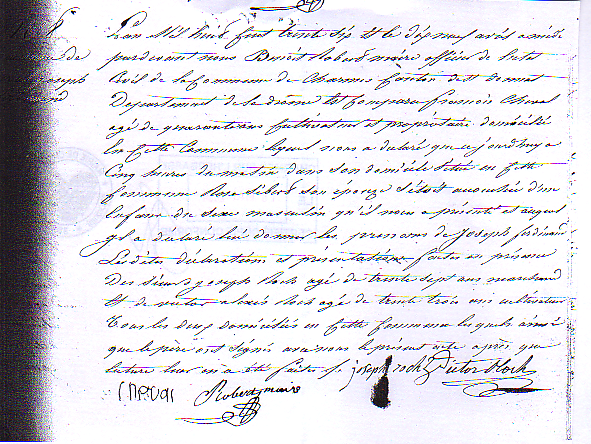 L'an Mil huit Cent trente six Et le dixneuf avril a midi
pardevant nous Benoit Robert maire officier de l'etat
Civil de la Commune de Charmes Canton de St Donnat
Departement de la drome Est Comparu francois Cheval
agé de quarante ans Cultivateur et propriétaire domicilié
En Cette Commune lequel nous a declaré que ce jourd'huy a
Cinq heures du matin dans son domicile situé en Cette
Commune Rose Sibert son épouze s'étoit accouchée d'un
Enfant du Sexe masculin qu'il nous a présenté et auquel
il a déclaré lui donner les prenoms de Joseph ferdinand
Lesdites déclarations et présentations faites en présence
Des Sieurs joseph Roch agé de trente sept ans marchand
Et de victor alexis Roch agé de trente trois ans cultivateur
Tous les deux domiciliés en Cette Commune lesquels ainsi
que le père ont signés avec nous le présent acte après que
lecture leur en a été faite
joseph roch Victor Roch
Cheval Robert maire